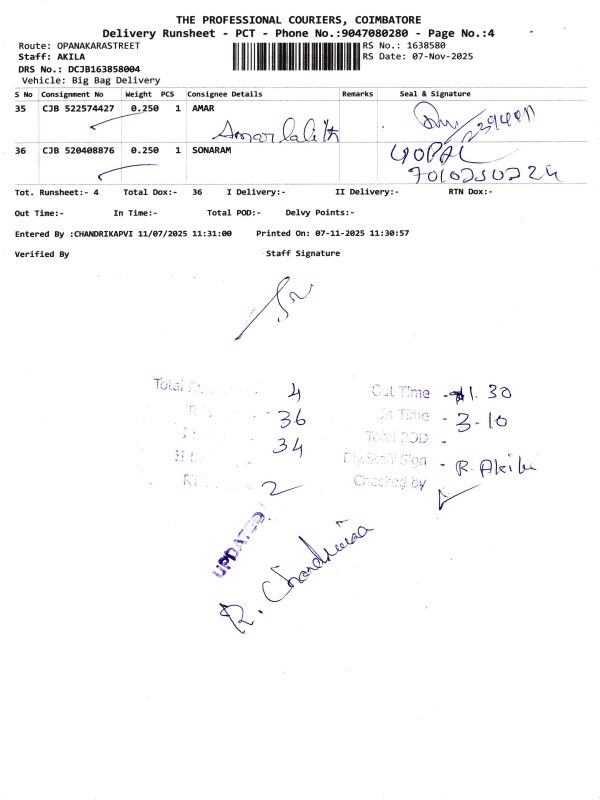 THE PROFESSIONAL COURIERS, COIMBATORE
Delivery Runsheet - PCT - Phone No.:9047080280 - Page No.:4
Route: OPANAKARASTREET
RS No.: 1638580
Staff: AKILA
RS Date: 07-Nov-2025
DRS No.: DCJB163858004
Vehicle: Big Bag Delivery
S No Consignment No Weight PCS Consignee Details Remarks Seal & Signature
35 CJB 522574427 0.250 1 AMAR
Amar lalith
36 CJB 520408876 0.250 1 SONARAM GOPAL
Tot. Runsheet:- 4 Total Dox:- 36 I Delivery:- II Delivery:- RTN Dox:-
Out Time:- In Time:- Total POD:- Delvy Points:-
Entered By :CHANDRIKAPVI 11/07/2025 11:31:00 Printed On: 07-11-2025 11:30:57
Verified By Staff Signature
Total 4 Out Time - 11.30
36 In Time - 3-10
34 Total POD -
Dly.Staff Sign - R. Akila
2 Checked by
UPDATED
R. Chandrikaa